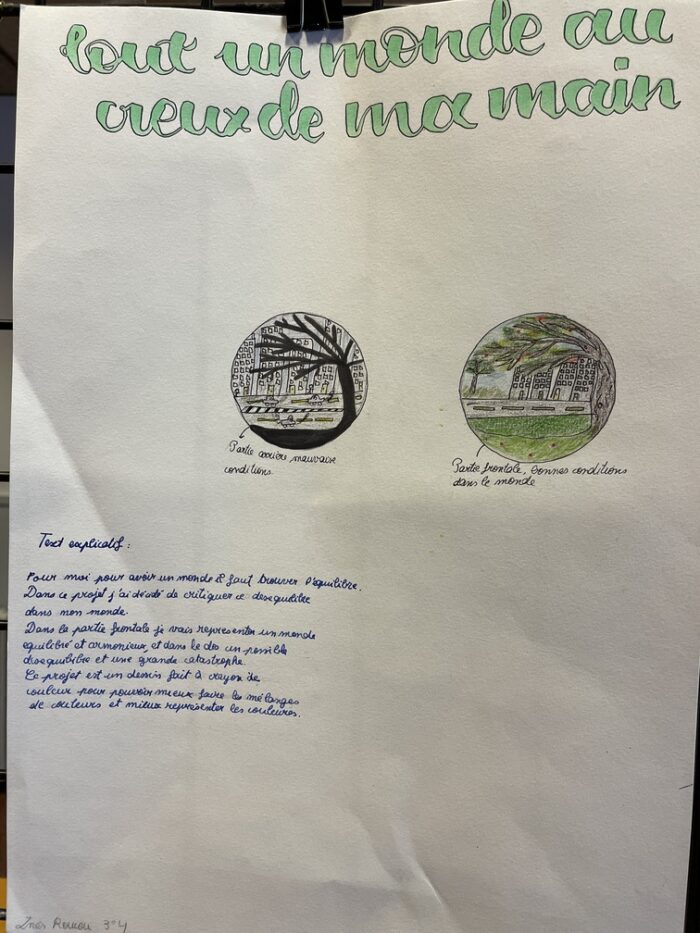 tout un monde au
creux de ma main
Partie arrière mauvaise
conditions.
Partie frontale, bonnes conditions
dans le monde
Text explicatif :
Pour moi pour avoir un monde il faut trouver l'equilibre.
Dans ce projet j'ai décidé de critiquer ce desequilibre
dans mon monde.
Dans la partie frontale je vais representer un monde
equilibré et armonieux, et dans le dos un possible
desequilibre et une grande catastrophe.
Ce projet est un dessin fait à crayon de
couleur pour pouvoir mieux faire les mélanges
de couleurs et mieux representer les couleures.
Inés 3°4